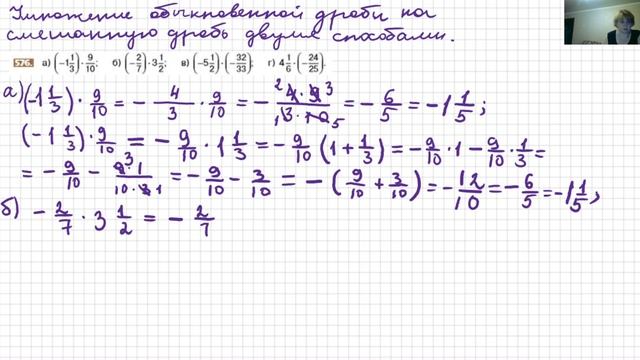 Умножение обыкновенной дроби на
смешанную дробь двумя способами.
576. а) (−1 1/3) · 9/10; б) (−2/7) · 3 1/2; в) (−5 1/2) · (−32/33); г) 4 1/6 · (−24/25).
а) (−1 1/3) · 9/10 = − 4/3 · 9/10 = − 2 4 · 9 3 / 1 3 · 10 5 = − 6/5 = −1 1/5;
(−1 1/3) · 9/10 = − 9/10 · 1 1/3 = − 9/10 (1 + 1/3) = − 9/10 · 1 − 9/10 · 1/3 =
= − 9/10 − 9 3 · 1 / 10 · 3 1 = − 9/10 − 3/10 = − (9/10 + 3/10) = − 12/10 = − 6/5 = −1 1/5;
б) − 2/7 · 3 1/2 = − 2/7